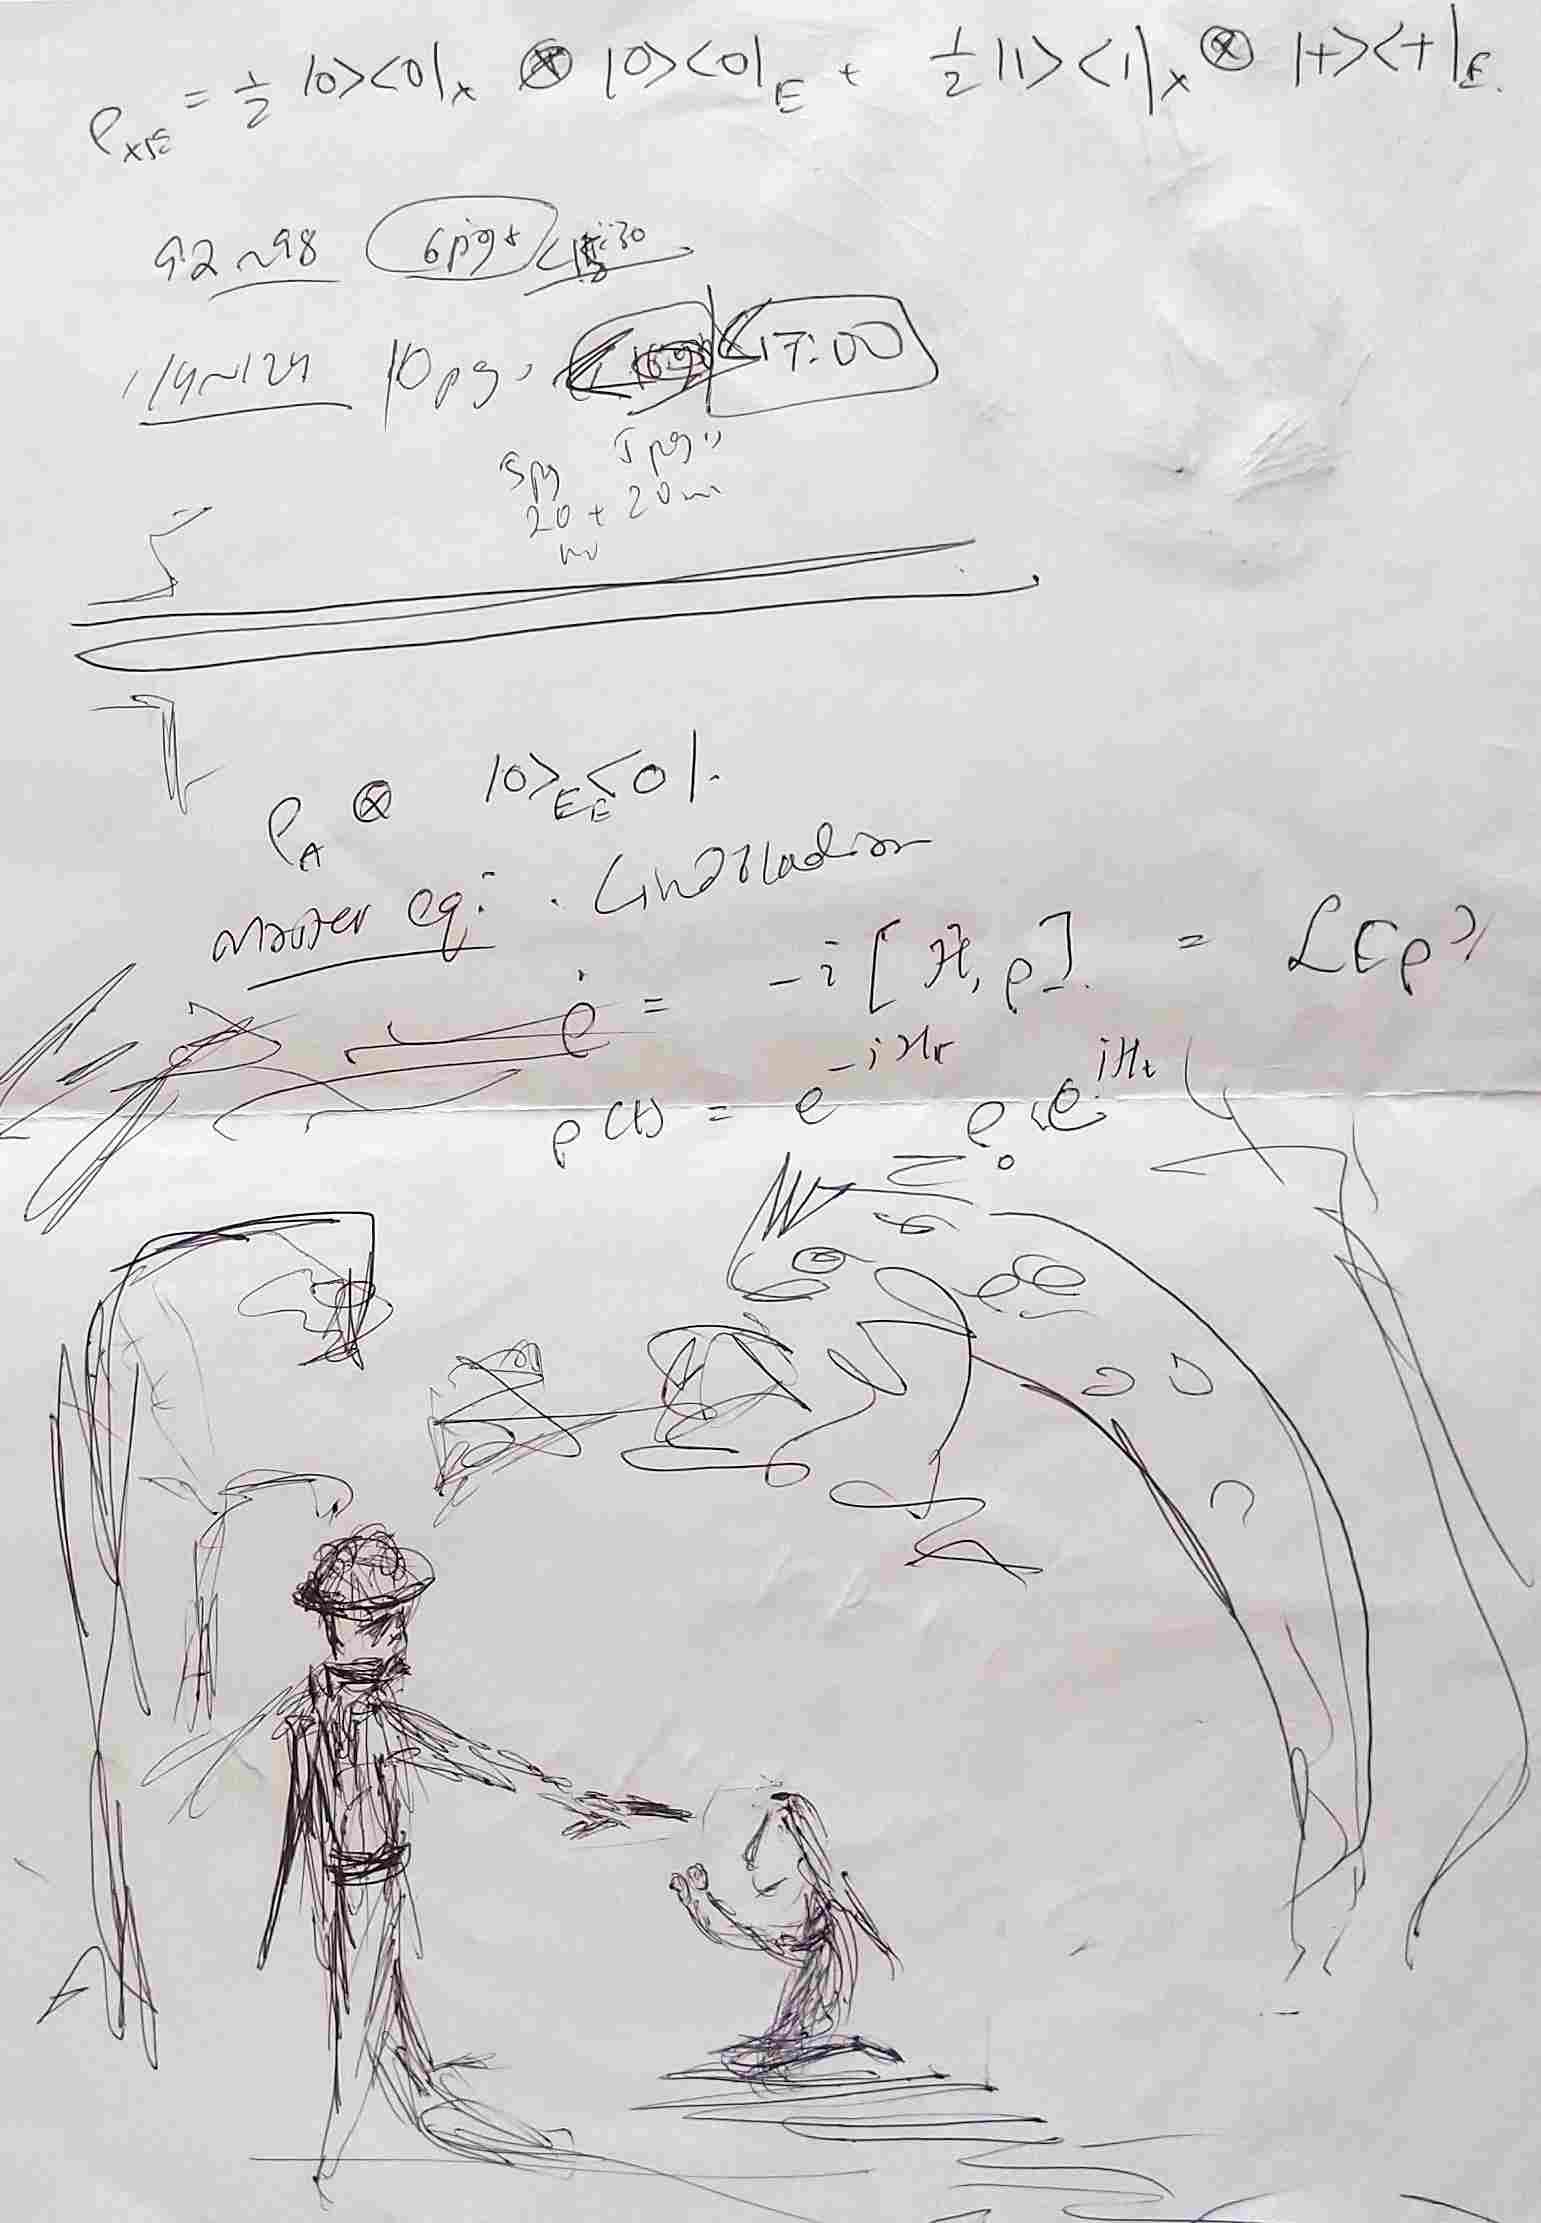 ρ_XE = 1/2 |0><0|_X ⊗ |0><0|_E + 1/2 |1><1|_X ⊗ |+><+|_E.
92~98 6pgs
114~124 10pgs <17:00
5pg 5pgs
20 + 20m
ρ_A ⊗ |0>_E _E<0|.
Master eq: . Lindbladian
ρ̇ = -i [H, ρ]. = L[ρ]
ρ(t) = e^{-iHt} ρ_0 e^{iHt}